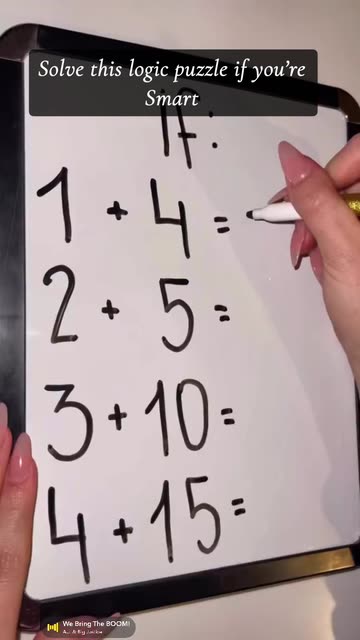 Solve this logic puzzle if you're
Smart
IF:
1 + 4 =
2 + 5 =
3 + 10 =
4 + 15 =
We Bring The BOOM!